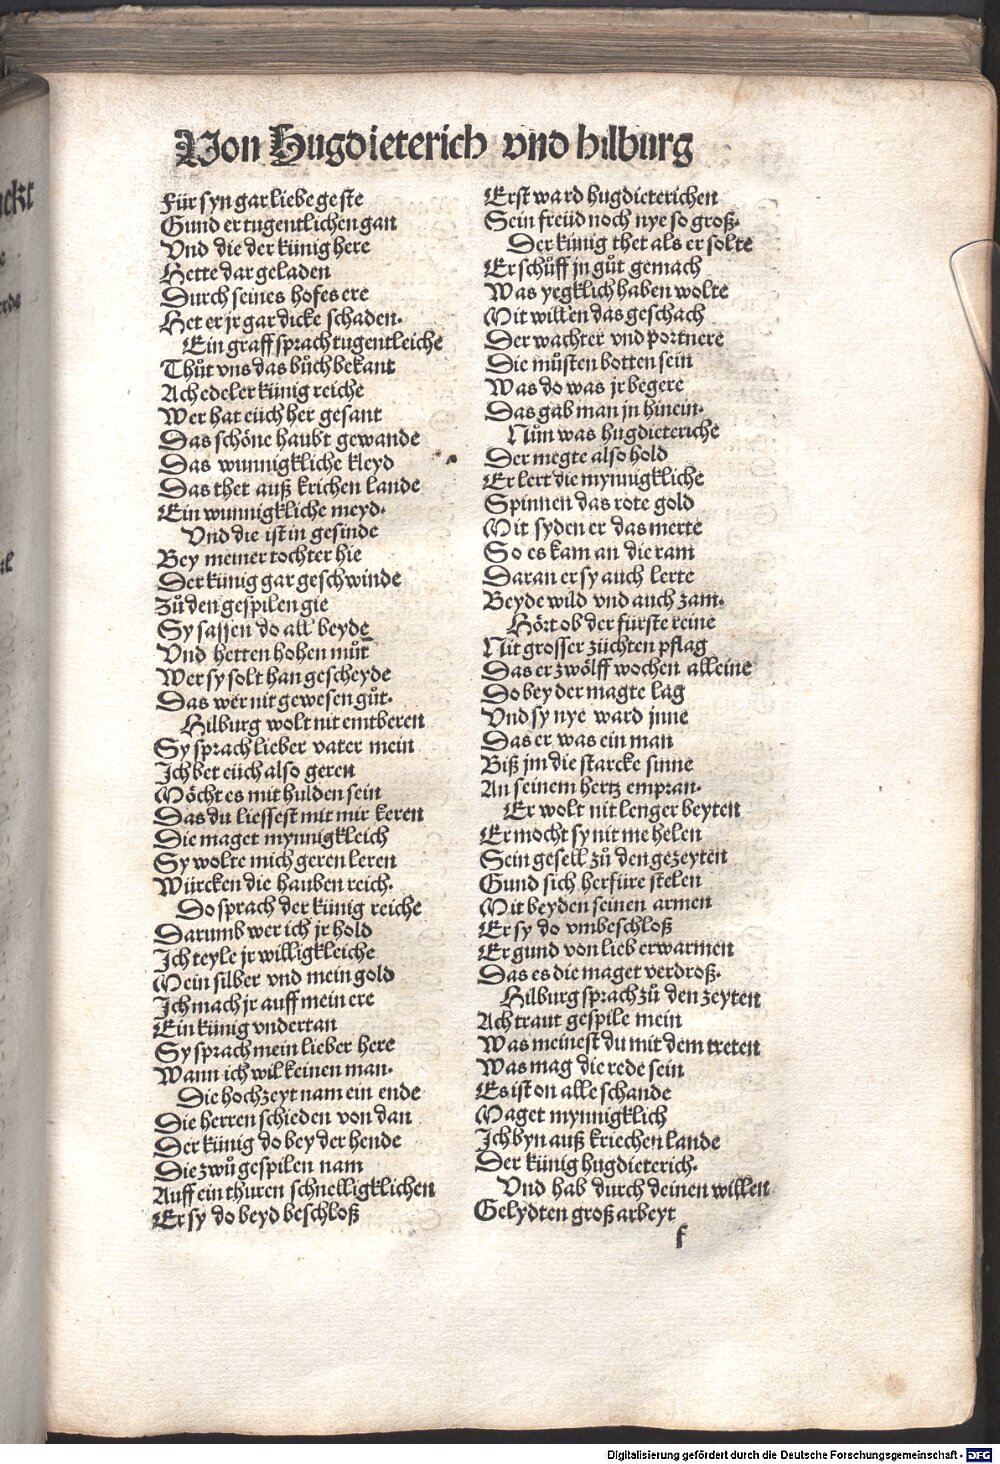 Von Hugdieterich vnd hilburg
Für syn gar liebe geste
Gund er tugentlichen gan
Vnd die der künig here
Hette dar geladen
Durch seines hofes ere
Het er jr gar dicke schaden.
Ein graff sprach tugentleiche
Thůt vns das bůch bekant
Ach edeler künig reiche
Wer hat eüch her gesant
Das schöne haubt gewande
Das wunnigkliche kleyd
Das thet auß krichen lande
Ein wunnigkliche meyd.
Vnd die ist in gesinde
Bey meiner tochter hie
Der künig gar geschwinde
Zů den gespilen gie
Sy sassen do all beyde
Vnd hetten hohen můt
Wer sy solt han gescheyde
Das wer nit gewesen gůt.
Hilburg wolt nit emtberen
Sy sprach lieber vater mein
Ich bet eüch also geren
Möcht es mit hulden sein
Das du liessest mit mir keren
Die maget mynnigkleich
Sy wolte mich geren leren
Würcken die hauben reich.
Do sprach der künig reiche
Darumb wer ich jr hold
Ich teyle jr willigkleiche
Mein silber vnd mein gold
Ich mach jr auff mein ere
Ein künig vndertan
Sy sprach mein lieber here
Wann ich wil keinen man.
Die hochzeyt nam ein ende
Die herren schieden von dan
Der künig do bey der hende
Die zwů gespilen nam
Auff ein thuren schnelligklichen
Er sy do beyd beschloß
Erst ward hugdieterichen
Sein freüd noch nye so groß.
Der künig thet als er solte
Er schůff jn gůt gemach
Was yegklich haben wolte
Mit willen das geschach
Der wachter vnd portnere
Die můsten botten sein
Was do was jr begere
Das gab man jn hinein.
Nůn was hugdieteriche
Der megte also hold
Er lert die mynnigkliche
Spinnen das rote gold
Mit syden er das merte
So es kam an die ram
Daran er sy auch lerte
Beyde wild vnd auch zam.
Hört ob der fürste reine
Nit grosser züchten pflag
Das er zwölff wochen alleine
Do bey der magte lag
Vnd sy nye ward jnne
Das er was ein man
Biß jm die starcke sinne
An seinem hertz empran.
Er wolt nit lenger beyten
Er mocht sy nit me helen
Sein gesell zů den gezeyten
Gund sich herfüre stelen
Mit beyden seinen armen
Er sy do vmbeschloß
Er gund von lieb erwarmen
Das es die maget verdroß.
Hilburg sprach zů den zeyten
Ach traut gespile mein
Was meinest du mit dem treten
Was mag die rede sein
Es ist on alle schande
Maget mynnigklich
Ich byn auß kriechen lande
Der künig hugdieterich.
Vnd hab durch deinen willen
Gelydten groß arbeyt
f
Digitalisierung gefördert durch die Deutsche Forschungsgemeinschaft - DFG